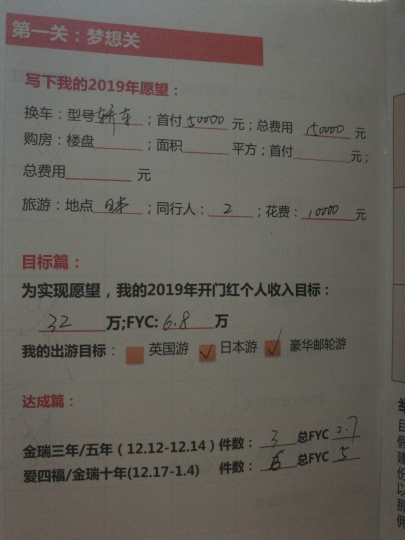 第一关：梦想关
写下我的2019年愿望：
换车：型号轿车；首付50000元；总费用150000元
购房：楼盘；面积平方；首付元；
总费用元
旅游：地点日本；同行人：2；花费：10000元
目标篇：
为实现愿望，我的2019年开门红个人收入目标：
32万;FYC:6.8万
我的出游目标：英国游 ✓日本游 ✓豪华邮轮游
达成篇：
金瑞三年/五年（12.12-12.14）件数：3总FYC 2.7
爱四福/金瑞十年(12.17-1.4) 件数：6总FYC 5